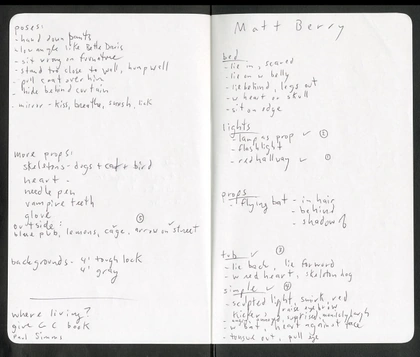 poses:
- hand down pants
- low angle like Bette Davis
- sit wrong on furniture
- stand too close to wall, hump wall
- pull coat over him
- hide behind curtain
- mirror - kiss, breathe, smash,
more props:
skeletons - dogs + cat + bird
heart -
needle pen
vampire teeth
glove
outside: ⑤
blue pub, lemons, cage, arrow on street
backgrounds - 4' tough lock
4' gray
where living?
give CC book
Matt Berry
bed
- lie in, scared
- lie on w belly
- lie behind, legs out
- w heart or skull
- sit on edge
lights
- lamp as prop ✓ ②
- flashlight
- red hallway ✓ ①
props
- flying bat - in hair
- behind
- shadow of
tub ✓ ③
- lie back, lie forward
- w red heart, skeleton dog
simple ✓ ④
- sculpted light, smirk, red
kicker, raise eyebrow
surprised,
- w bat, heart against face
- tongue out, pull eye